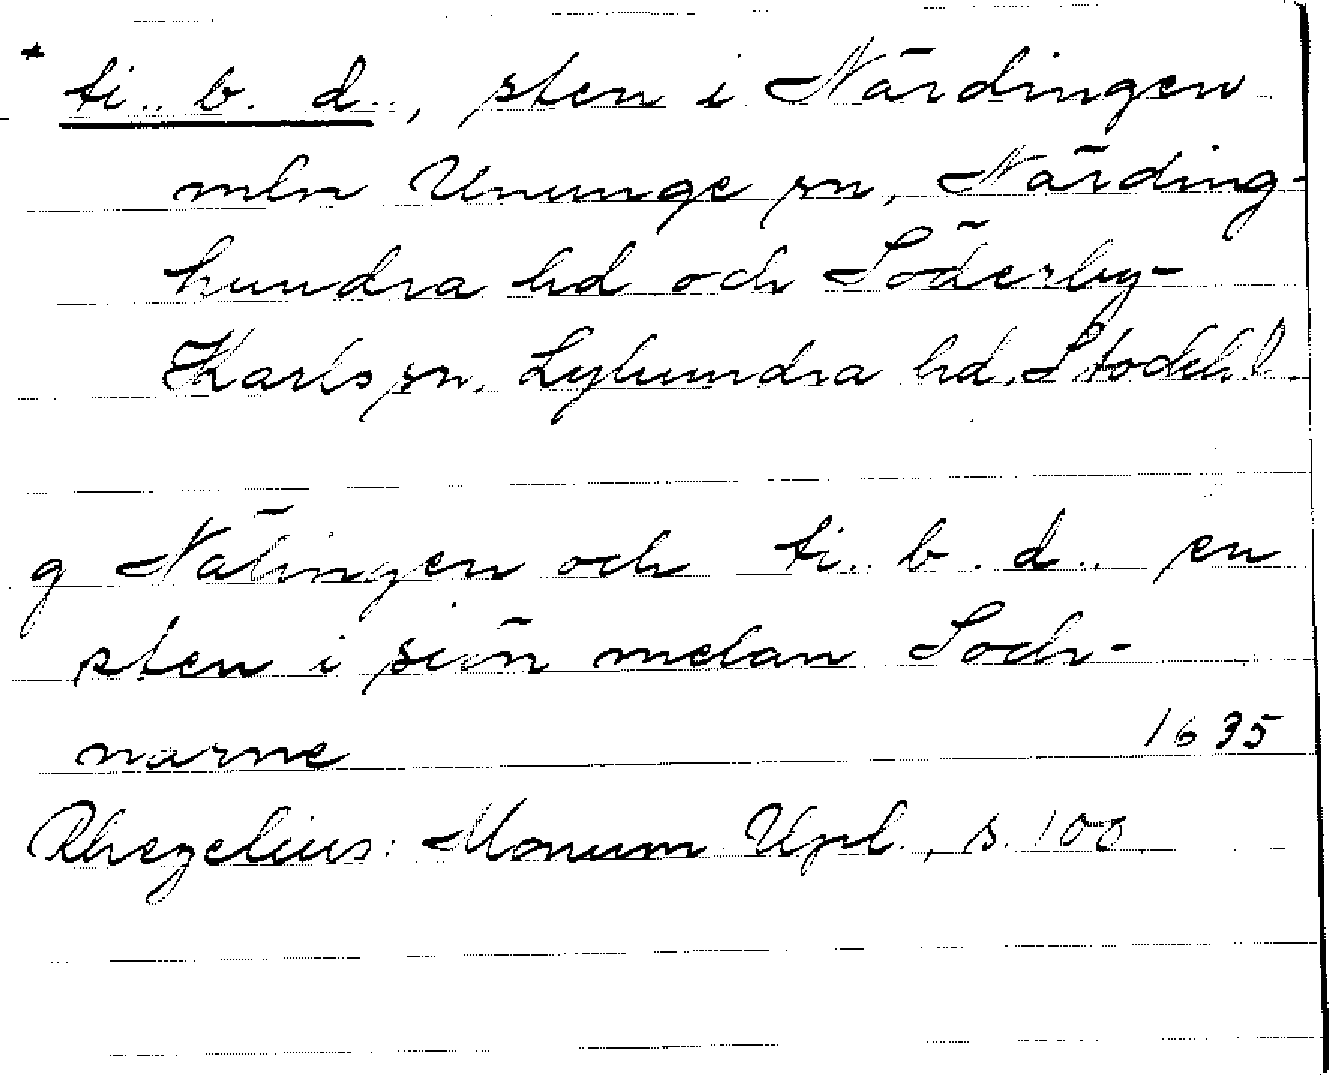 * ti.. b. d.., sten i Närdingen
mln Ununge sn, Närding-
hundra hd och Söderby-
Karls sn, Lyhundra hd, Stockh. l.
g Nälingen och ti.. b. d.. en
sten i siön melan Soch-
narne 1635
Rhezelius: Monum Upl., s. 100